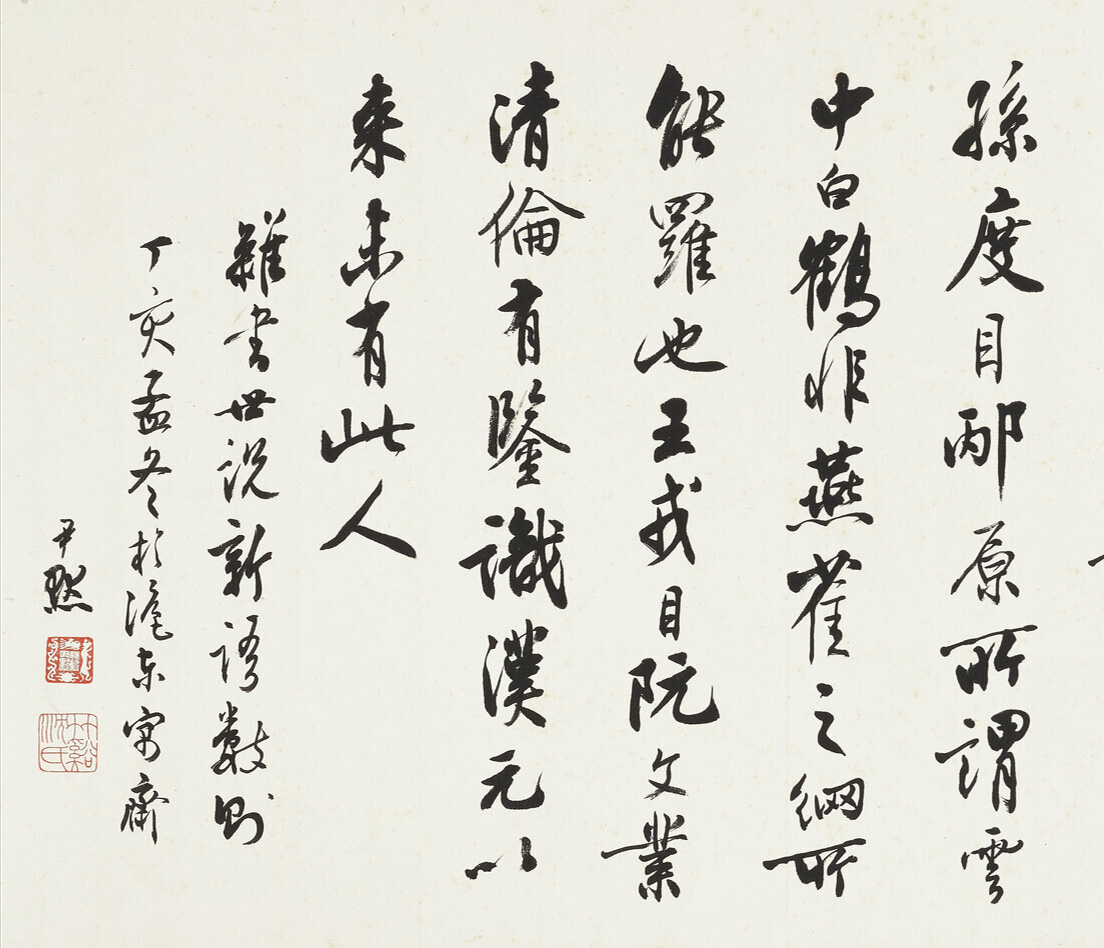 孫度目邴原所謂雲
中白鶴非燕雀之網所
能羅也王戎目阮文業
清倫有鑒識漢元以
來未有此人
雜書世說新語數則
丁亥孟冬於滬東寓齋
尹默
竹谿沈氏